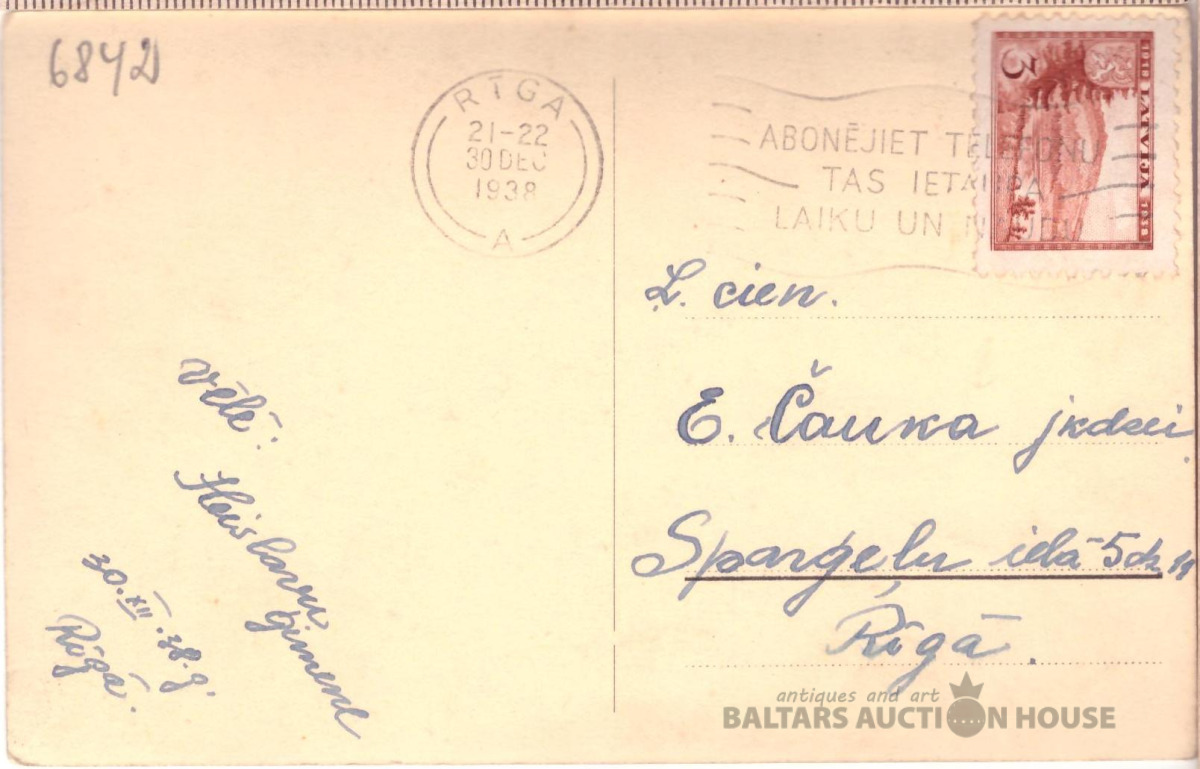 6842
RĪGA
21-22
30 DEC
1938
A
ABONĒJIET TELEFONU
TAS IETAUPA
LAIKU UN NAUDU
3
1918 LATVIJA 1938
L. cien.
E. Čauka jkdzei
Spargeļu ielā 5 dz.
Rīgā.
vēlē:
ģimene
30.XII.38.g.
Rīgā.
antiques and art
BALTARS AUCTION HOUSE